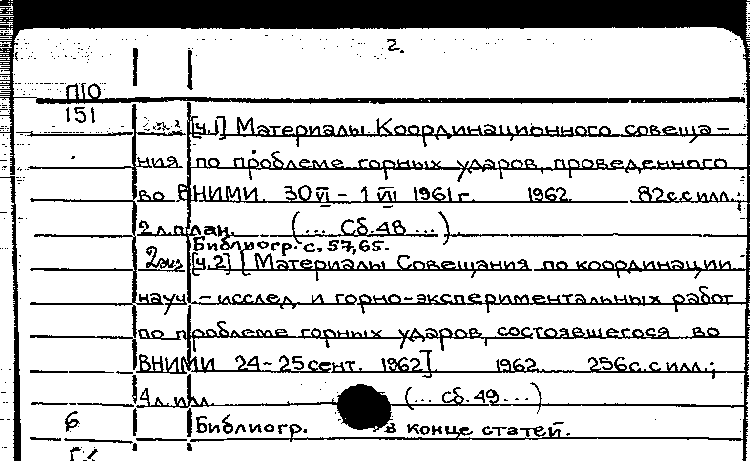 2.
П10
151
[ч.1] Материалы Координационного совеща-
ния по проблеме горных ударов, проведенного
во ВНИМИ. 30 VI - 1 VII 1961 г. 1962. 82 с. с илл.;
2 л. план. (... Сб. 48 ...)
Библиогр. с. 57, 65.
2 экз [ч.2] [Материалы Совещания по координации
науч.-исслед. и горно-экспериментальных работ
по проблеме горных ударов, состоявшегося во
ВНИМИ 24-25 сент. 1962]. 1962. 256 с. с илл.;
4 л. илл. (... Сб. 49 ...)
6 Библиогр. в конце статей.